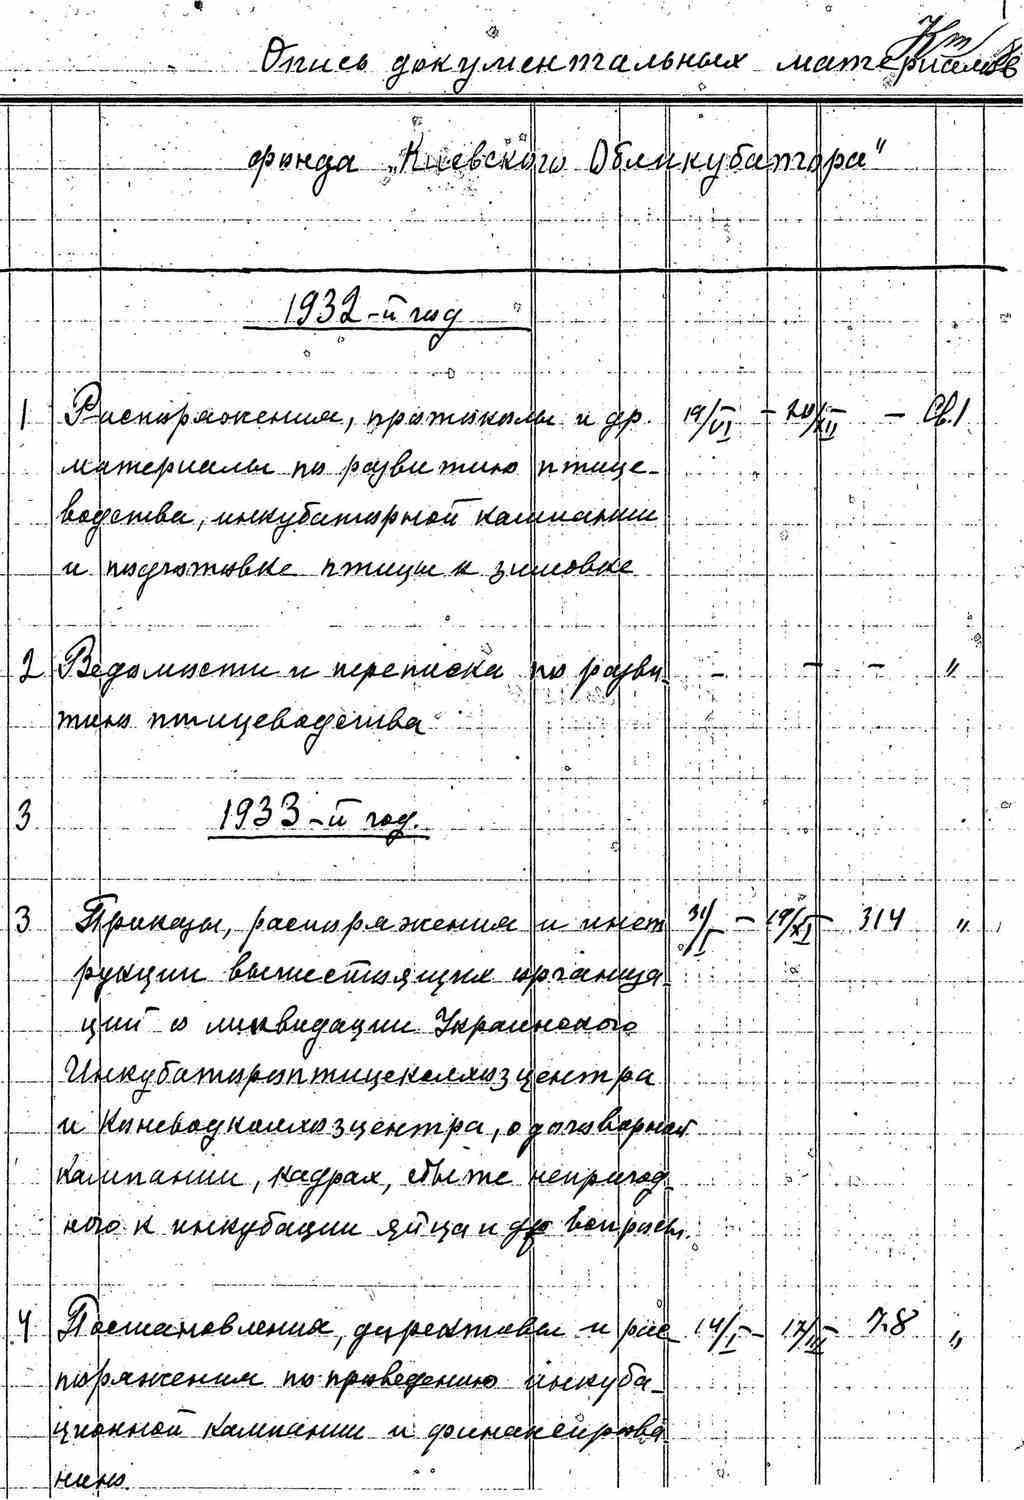 Опись документальных материалов
фонда „Киевского Облинкубатора"
1932-й год
1 Распоряжения, протоколы и др. 19/VI - 20/XII - Св.1
материалы по развитию птице-
водства, инкубаторной кампании
и подготовке птицы к зимовке
2 Ведомости и переписка по разви- - - - "
тию птицеводства
3 1933-й год.
3 Приказы, распоряжения и инст 31/I - 19/XI - 314 "
рукции вышестоящих организа-
ций о ликвидации Украинского
Инкубатороптицеколхозцентра
и Киевводколхозцентра, о договорной
кампании, кадрах, сбыте непригод-
ного к инкубации яйца и др вопросы.
4 Постановления, директивы и рас- 14/I - 17/III - 78 "
поряжения по проведению инкуба-
ционной кампании и финансирова-
нию.